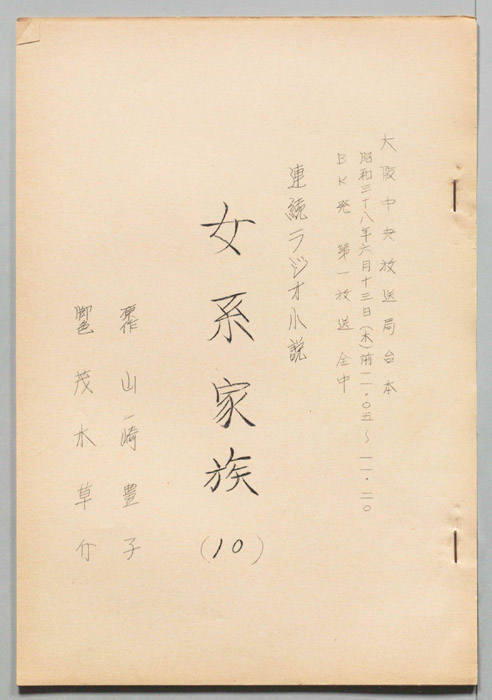 大阪中央放送局台本
昭和三十八年六月十三日(木)前一一・〇五〜一一・二〇
BK発 第一放送 全中
連続ラジオ小説
女系家族
(10)
原作 山崎豊子
脚色 茂木草介